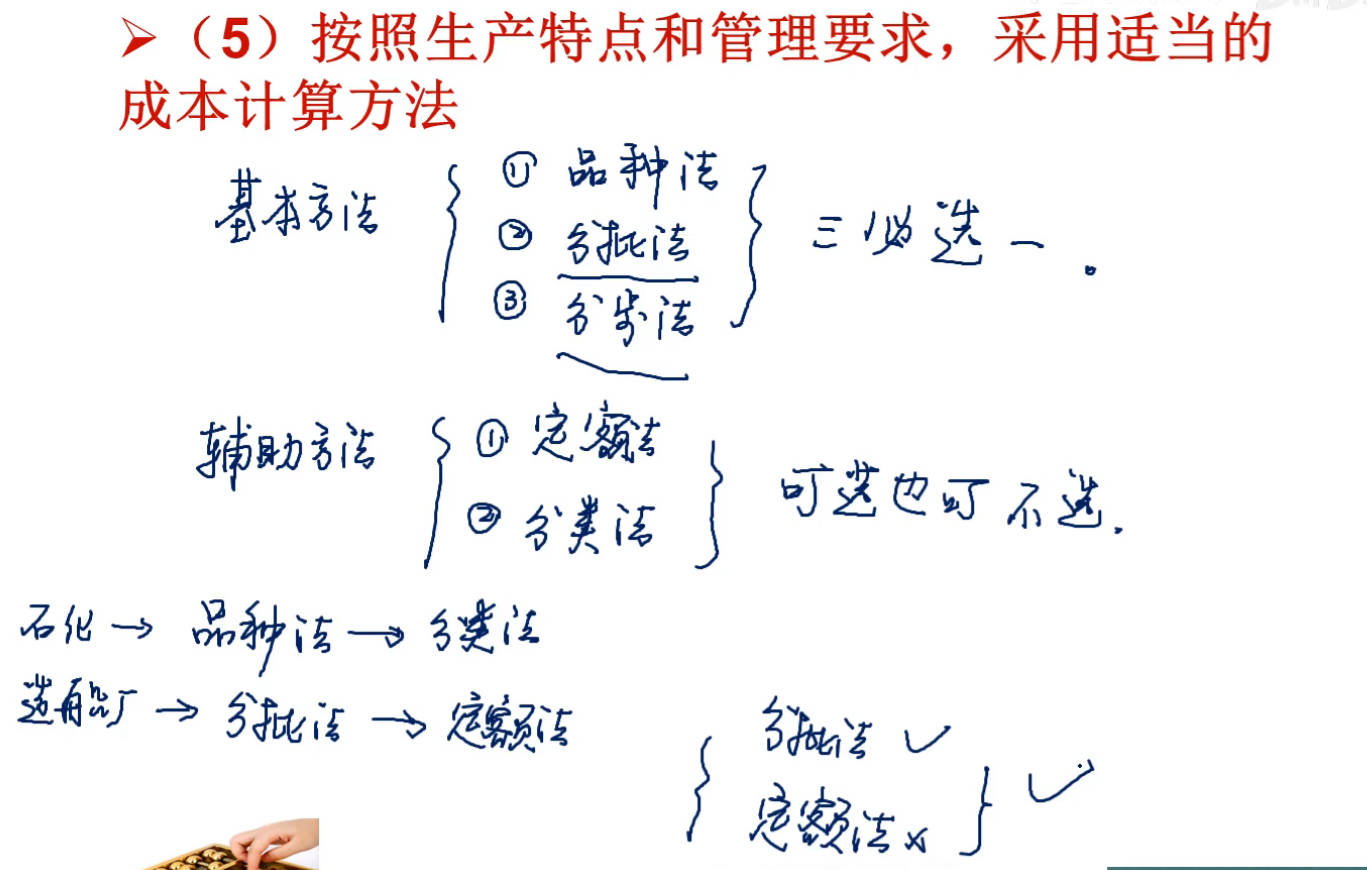 ➢（5）按照生产特点和管理要求，采用适当的
成本计算方法
基本方法 { ① 品种法
② 分批法
③ 分步法 } 三必选一。
辅助方法 { ① 定额法
② 分类法 } 可选也可不选.
石化 → 品种法 → 分类法
造船厂 → 分批法 → 定额法
{ 分批法 ✓
定额法 x } ✓